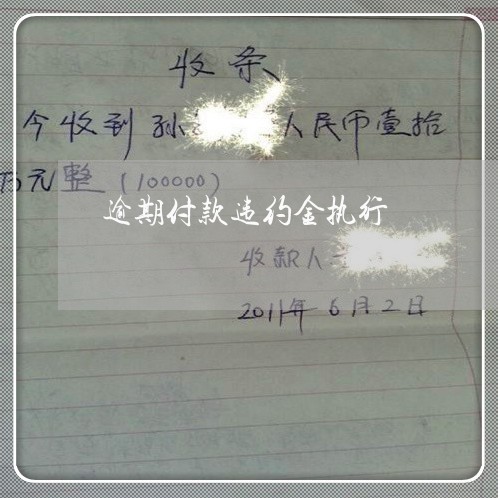 收条
今收到孙 人民币壹拾
万元整（100000）
逾期付款违约金执行
收款人
2011年6月2日